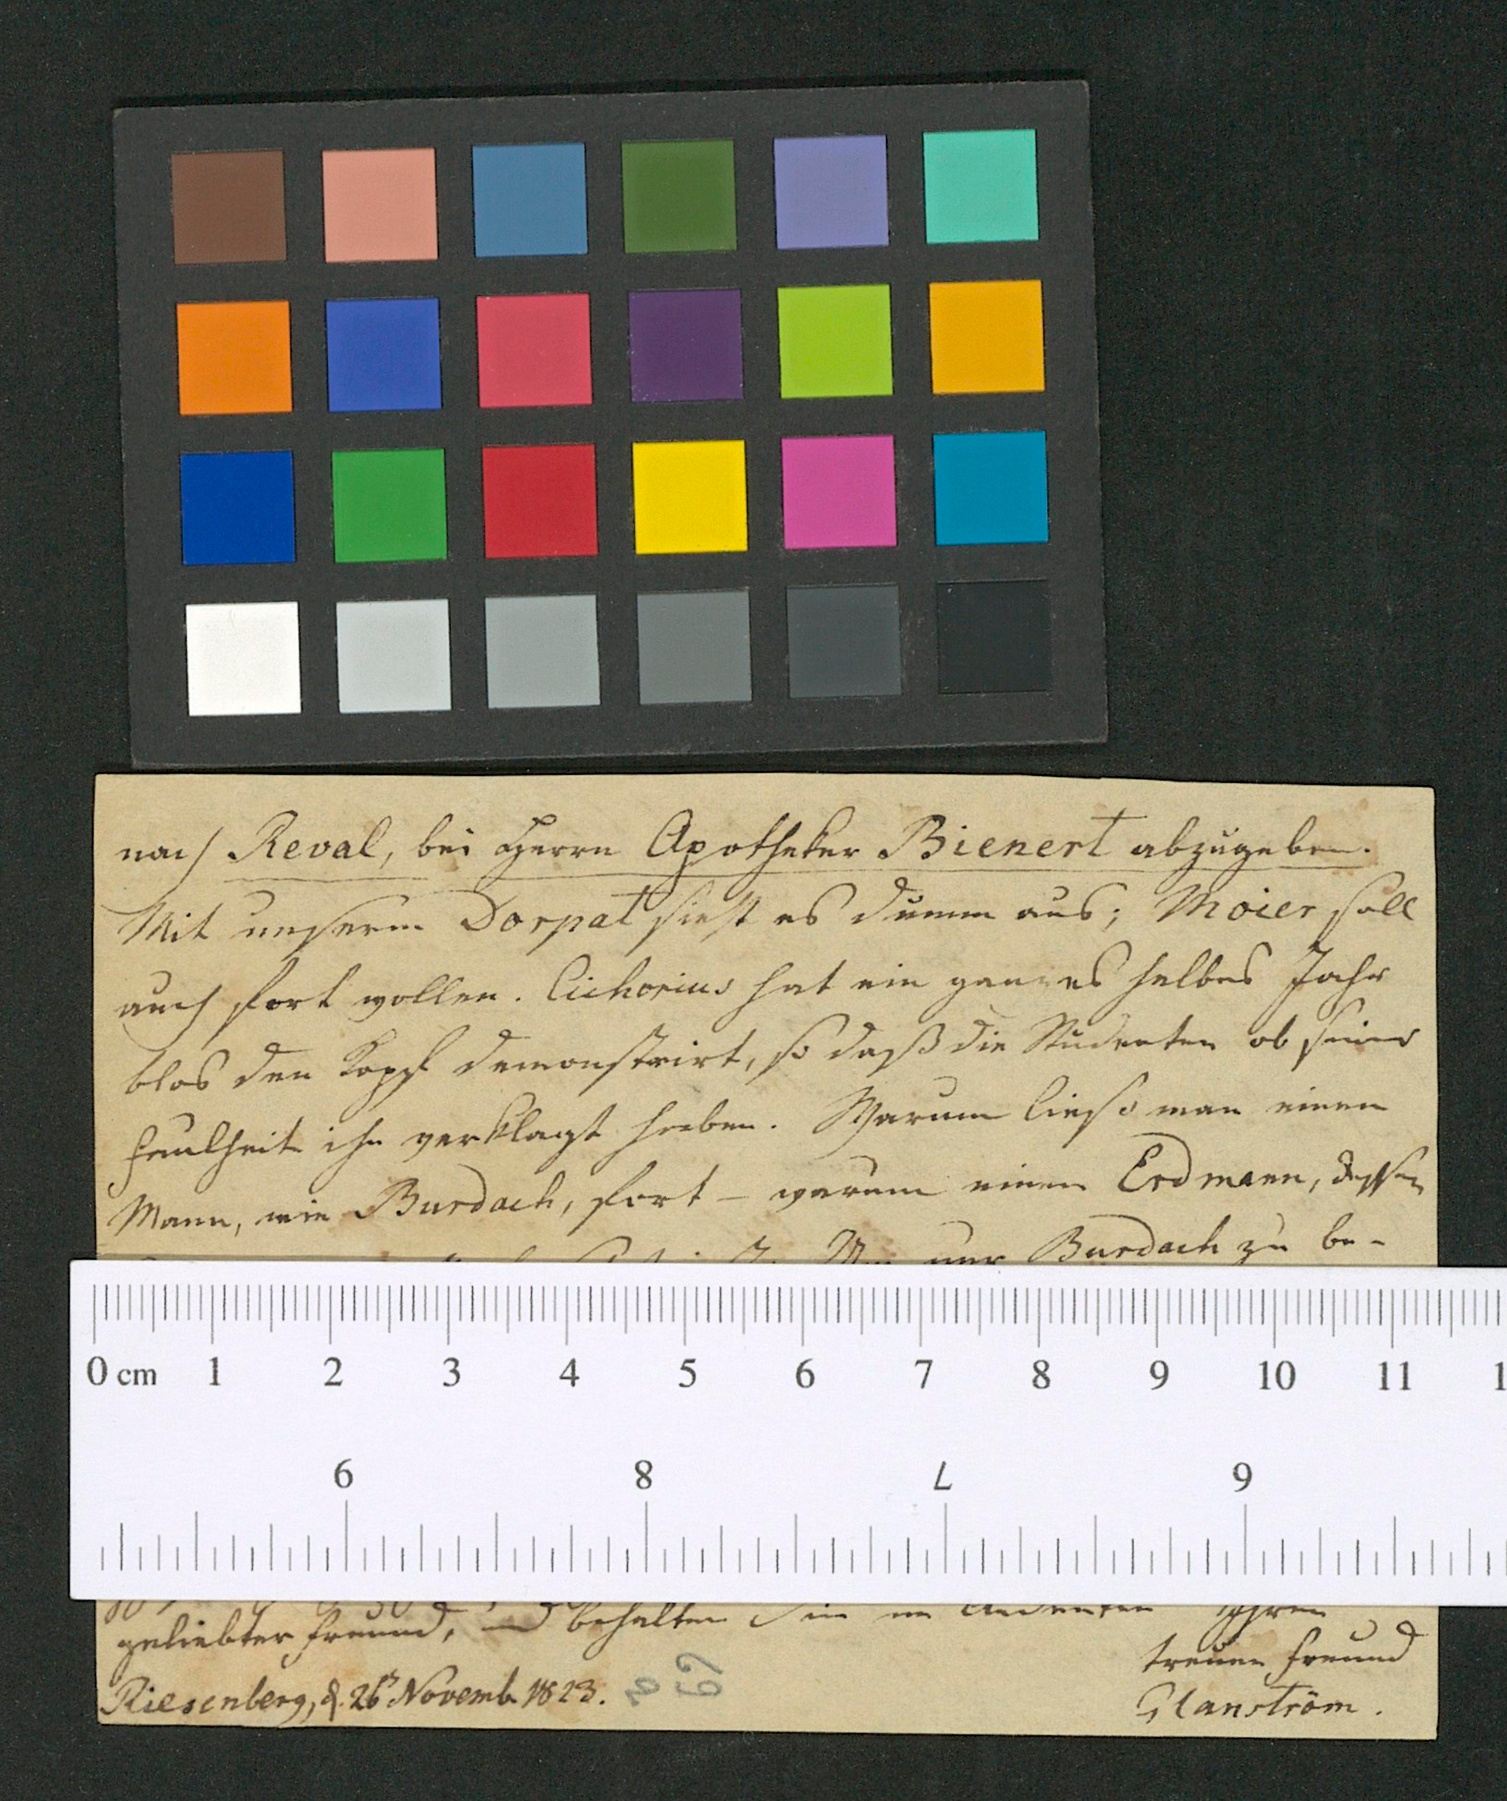 nach Reval, bei Herrn Apotheker Bienert abzugeben.
Mit unserm Dorpat sieht es dumm aus; Moier soll
auch fort wollen. Cichorius hat ein ganzes halbes Jahr
blos den Kopf demonstrirt, so daß die Studenten ob seiner
Faulheit ihn verklagt haben. Warum liess man einen
Mann, wie Burdach, fort – warum einen Erdmann, dessen
nur Burdach zu be-
0 cm 1 2 3 4 5 6 7 8 9 10 11 1
9 8 7 6
behalten Sie im Andenken Ihren
geliebter Freund, und
treuen Freund
Riesenberg, d. 26 Novemb. 1823.
Glanström.
69